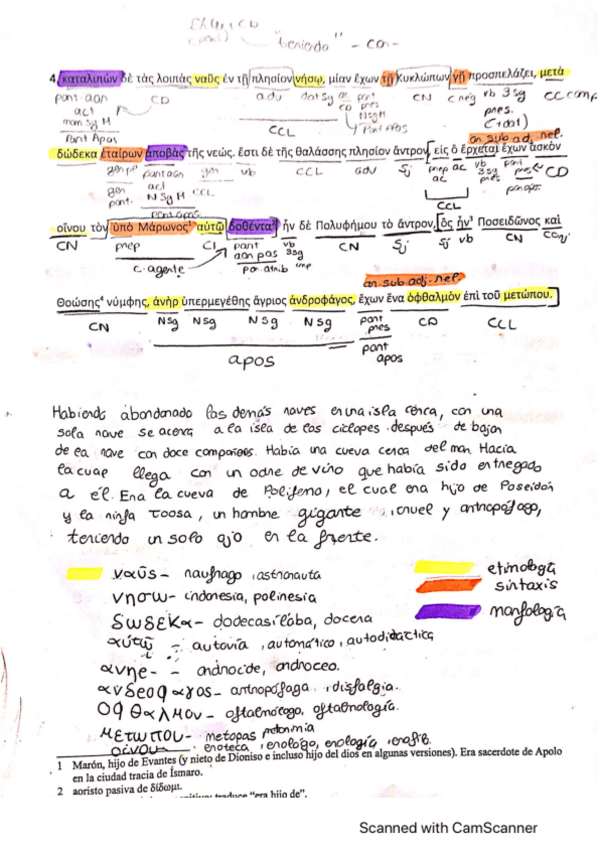 "teniendo" - con -
4. καταλιπὼν δὲ τὰς λοιπὰς ναῦς ἐν τῇ πλησίον νήσῳ, μίαν ἔχων τῇ Κυκλώπων γῇ προσπελάζει, μετὰ
part. aor CD adv dat Sg CN C neg vb 3sg CC comp
act pres.
CCL
Part Apos
an. sub adj. nel.
δώδεκα ἑταίρων ἀποβὰς τῆς νεώς. ἔστι δὲ τῆς θαλάσσης πλησίον ἄντρον, εἰς ὃ ἔρχεται ἔχων ἀσκὸν
gen pl part aor gen vb CCL adv Sj prep ac vb part CD
act 3 sg pres
N Sg M CCL
CCL
part apos.
οἴνου τὸν ὑπὸ Μάρωνος¹ αὐτῷ δοθέντα² ἦν δὲ Πολυφήμου τὸ ἄντρον, ὃς ἦν³ Ποσειδῶνος καὶ
CN prep CI part vb CN Sj Sj vb CN Conj
aor pas 3sg
C. agente
an. sub. adj. nel.
Θοώσης⁴ νύμφης, ἀνὴρ ὑπερμεγέθης ἄγριος ἀνδροφάγος, ἔχων ἕνα ὀφθαλμὸν ἐπὶ τοῦ μετώπου.
CN NSg NSg NSg NSg part CD CCL
pres
part
apos
apos
Habiendo abandonado las demás naves en una isla cerca, con una
sola nave se acerca a la isla de los cíclopes después de bajar
de la nave con doce compañeros. Había una cueva cerca del mar. Hacia
la cual llega con un odre de vino que había sido entregado
a él. Era la cueva de Polifemo, el cual era hijo de Poseidón
y la ninfa Toosa, un hombre gigante, cruel y antropófago,
teniendo un solo ojo en la frente.
ναῦς - naufrago, astronauta
etimología
sintaxis
νησω - indonesia, polinesia
morfología
δωδεκα - dodecasílaba, docena
αὐτῷ - autovía, automático, autodidactica
ανηρ - androcide, androceo.
ανδροφαγος - antropófaga, disfalgia.
οφθαλμον - oftalmólogo, oftalmología.
μετωπου - metopas
οινου - enoteca, enologo, enología
1 Marón, hijo de Evantes (y nieto de Dioniso e incluso hijo del dios en algunas versiones). Era sacerdote de Apolo
en la ciudad tracia de Ísmaro.
2 aoristo pasiva de δίδωμι.
traduce "era hijo de".
Scanned with CamScanner